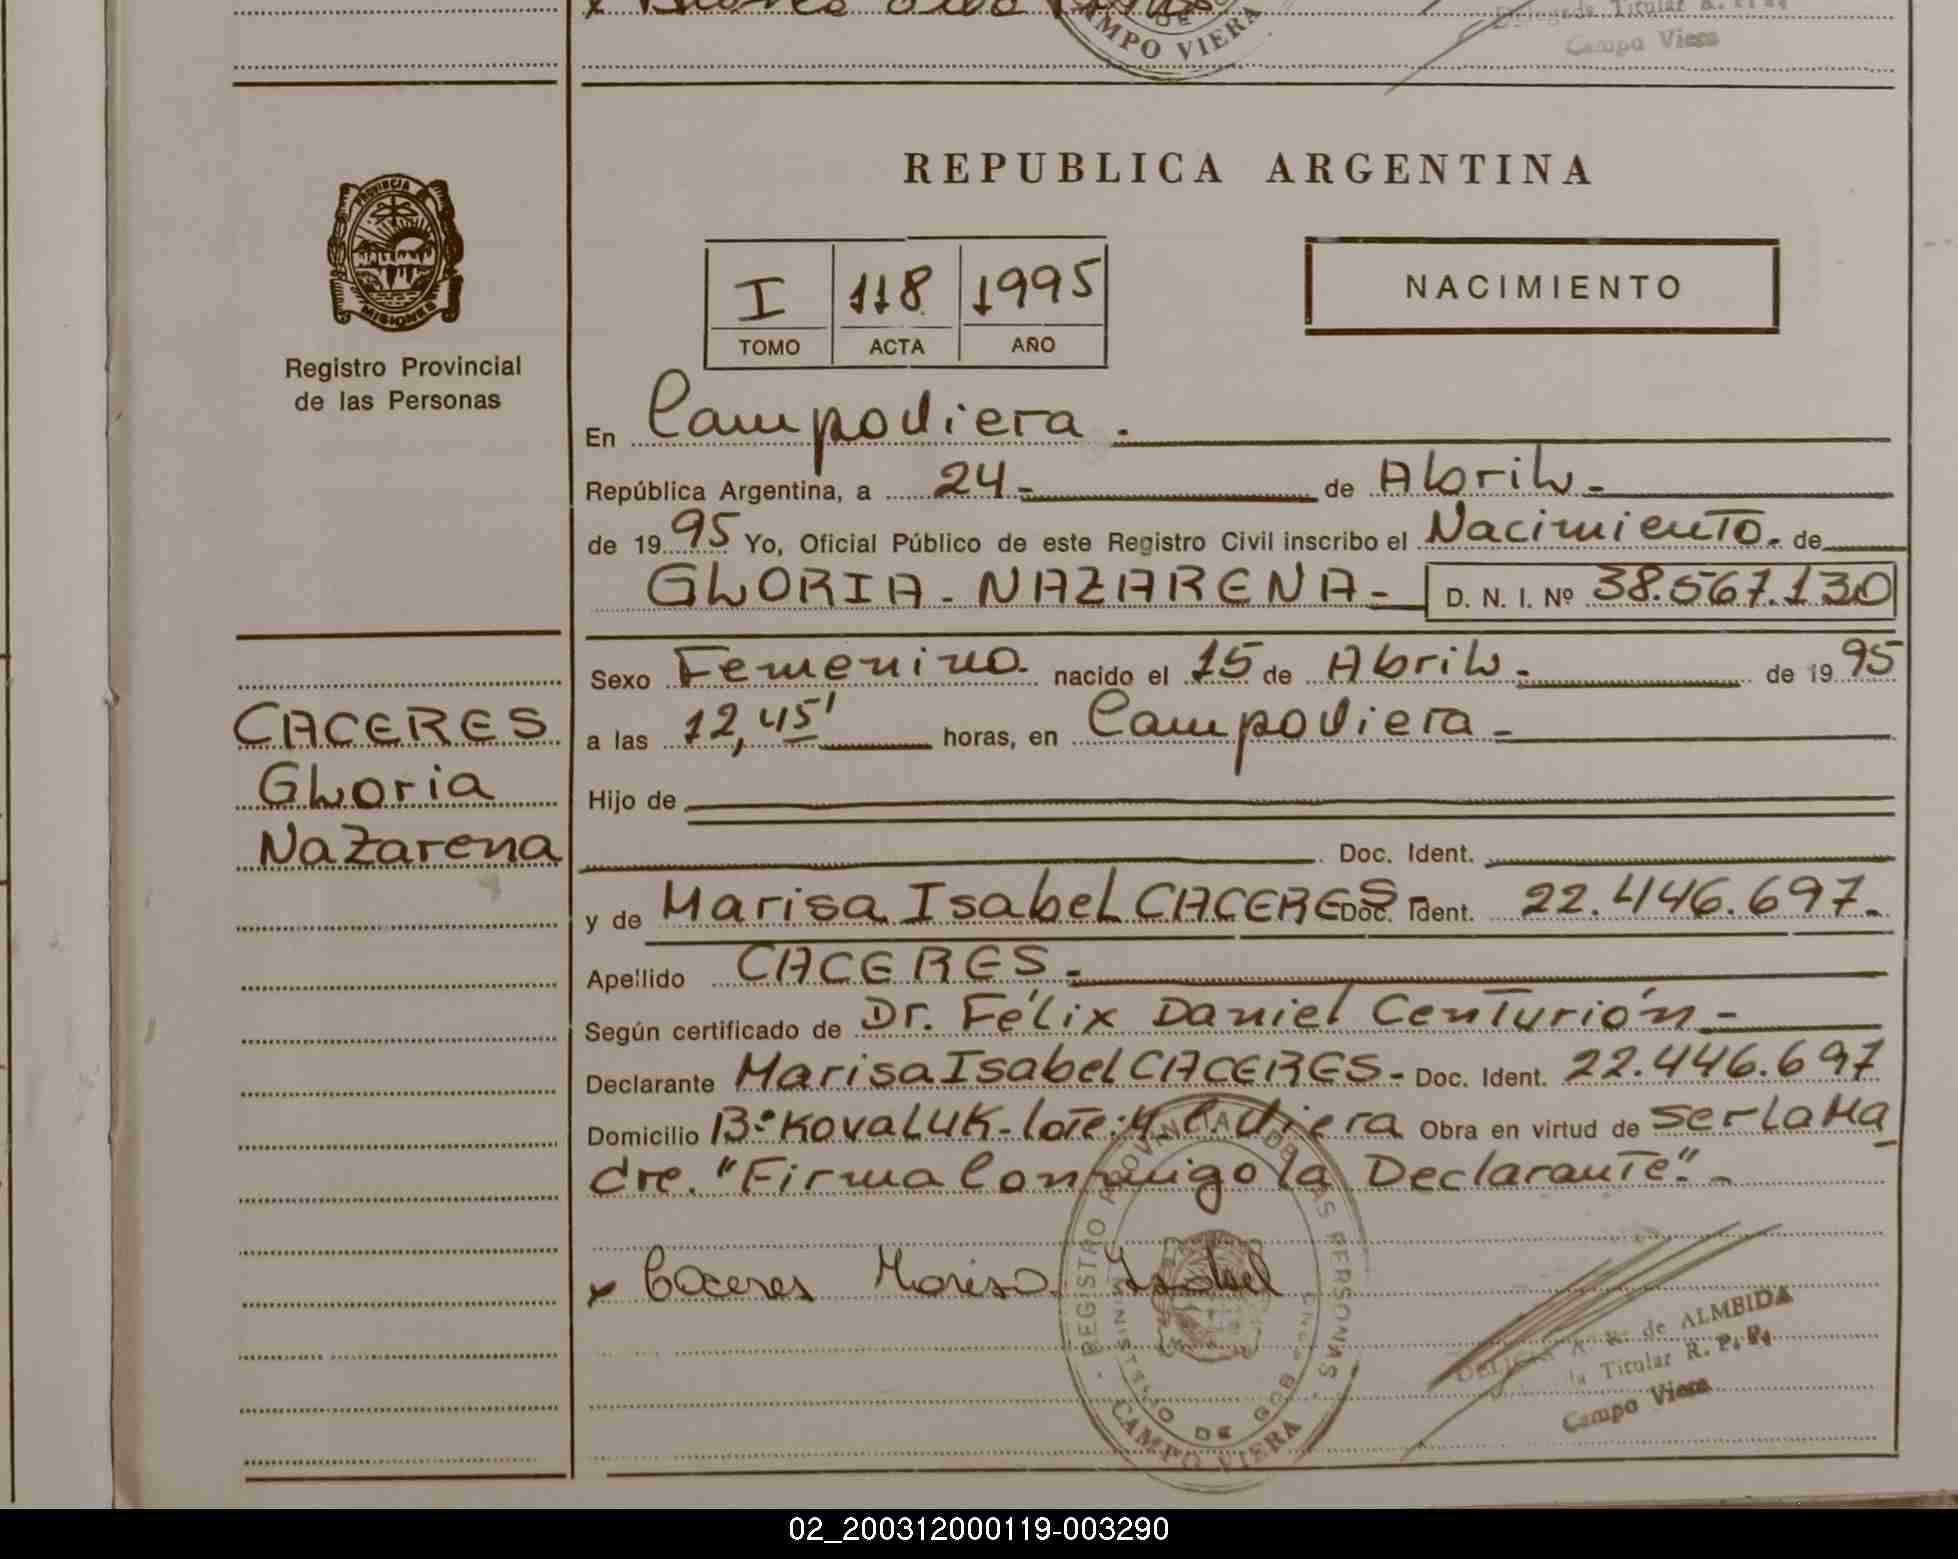 CAMPO VIERA
Campo Viera
REPUBLICA ARGENTINA
PROVINCIA
MISIONES
Registro Provincial
de las Personas
I 118 1995
TOMO ACTA AÑO
NACIMIENTO
En Campo Viera.
República Argentina, a 24- de Abril-
de 1995 Yo, Oficial Público de este Registro Civil inscribo el Nacimiento. de
GLORIA - NAZARENA - D. N. I. Nº 38.567.130
Sexo Femenino nacido el 15 de Abril. de 1995
CACERES
Gloria
Nazarena
a las 12,45' horas, en Campo Viera -
Hijo de
Doc. Ident.
y de Marisa Isabel CACERES Doc. Ident. 22.446.697.
Apellido CACERES -
Según certificado de Dr. Félix Daniel Centurión -
Declarante Marisa Isabel CACERES - Doc. Ident. 22.446.697
Domicilio Bº Kovaluk - lote: 4 C. Viera Obra en virtud de ser la Ma
dre. "Firma Conmigo la Declarante". -
x Caceres Marisa Isabel
REGISTRO PROVINCIAL DE LAS PERSONAS
MINISTERIO DE GOB
CAMPO VIERA
A. R. de ALMEIDA
Titular R. P. P.
Campo Viera
02_200312000119-003290